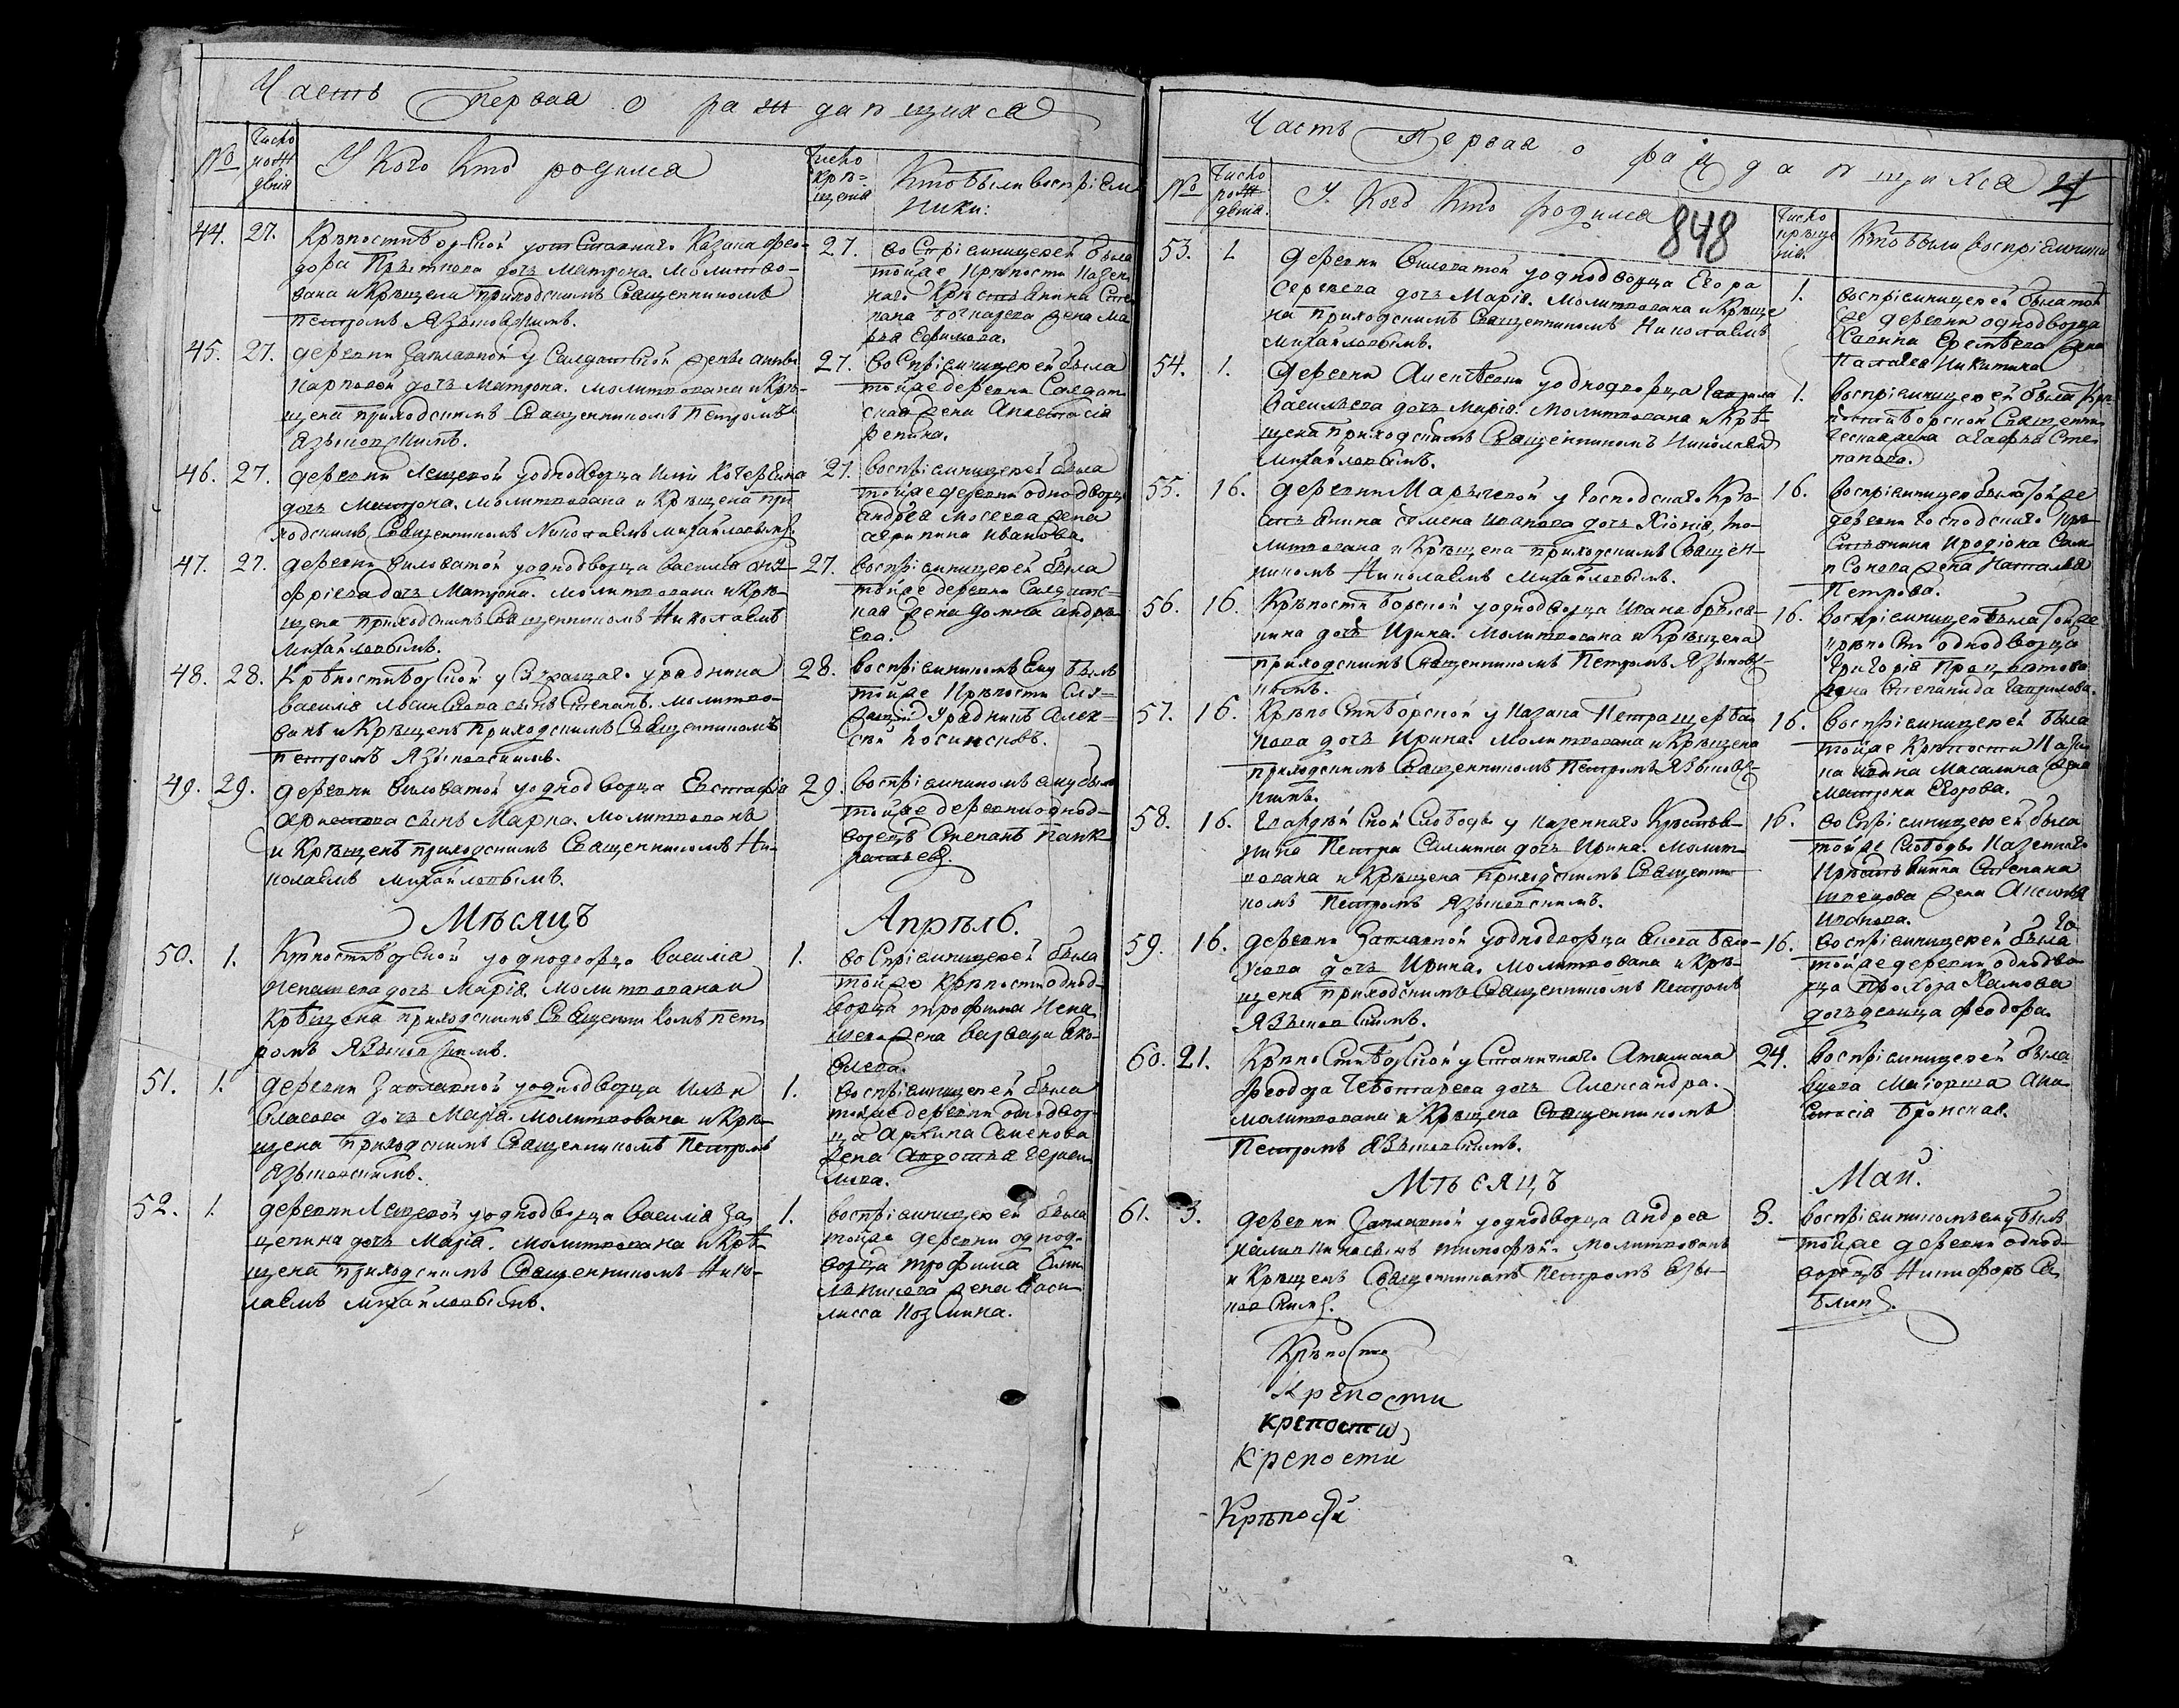 Часть Первая о раждающихся
№
Число рождения
У Кого Кто родился
Число крѣ-
щения
Кто были воспріем
ники:
44. 27.
Крѣпости Борской у отставнаго Казака Фео-
дора дочь Матрона. Молитво-
вана и Крѣщена приходскимъ Священникомъ
Петромъ Языковскимъ.
27.
воспріемницею ей была
тойже Крѣпости казен
наго Крѣстьянина Сте
пана жена Ма
рѳа Ефимова.
45. 27.
деревни Заплавной у Салдатской жены
Карповой дочь Матрона. молитвована и Крѣ-
щена приходскимъ Священникомъ Петромъ
Языковскимъ.
27.
воспріемницею ей была
тойже деревни Салдат
ская жена Анастасія
46. 27.
деревни Лещевой у однодворца Ильи
дочь Матрона. молитвована и Крѣщена при
ходскимъ Священникомъ Николаемъ Михайловымъ.
27.
воспріемницею ей была
тойже деревни однодворца
андрея Мосеева жена
агрипина иванова.
47. 27.
деревни Виловатой у однодворца Василія ону-
фріева дочь Матрона. молитвована и Крѣ-
щена приходскимъ Священникомъ Николаемъ
Михайловымъ.
27.
воспріемницею ей была
тойже деревни Салдатс-
кая жена домна андрѣ
ева.
48. 28.
Крѣпости Борской у Служащаго урядника
Василія сынъ Степанъ. молитво-
ванъ и Крѣщенъ приходскимъ Священникомъ
Петромъ Языковскимъ.
28.
воспріемникомъ Ему былъ
тойже Крѣпости Слу-
жащій Урядникъ Алек-
сѣй Косинсковъ.
49. 29.
деревни Виловатой у однодворца Евстафія
сынъ Марка. Молитвованъ
и Крѣщенъ приходскимъ Священникомъ Ни-
колаемъ Михайловымъ.
29.
воспріемникомъ ему былъ
тойже деревни однод-
ворецъ Степанъ Панк-
ратьевъ.
Мѣсяцъ Апрѣль.
50. 1.
Крѣпости Борской у однодворца Василія
Ненашева дочь Марія. Молитвована и
Крѣщена приходскимъ Священникомъ Пет
ромъ Языковскимъ.
1.
воспріемницею ей была
тойже Крѣпости однод-
ворца трофима Нена
шева жена Варвара Яко-
влева.
51. 1.
деревни Заплавной у однодворца Ильи
Власова дочь Марія. Молитвована и Крѣ-
щена приходскимъ Священникомъ Петромъ
Языковскимъ.
1.
воспріемницею ей была
тойже деревни однодвор-
ца Архипа Семенова
жена Авдотья
52. 1.
деревни Лещевой у однодворца Василія За
цепина дочь Марія. молитвована и Крѣ-
щена приходскимъ Священникомъ Нико-
лаемъ Михайловымъ.
1.
воспріемницею ей была
тойже деревни однод-
ворца трофима
жена Васи
лисса Козмина.
Часть Первая о раждающихся 21
848
№
Число рождения.
У Кого Кто родился
Число крѣще
ния.
Кто были воспріемники
53. 1.
деревни Виловатой у однодворца Егора
Сергеева дочь Марія. Молитвована и Крѣще
на приходскимъ Священникомъ Николаемъ
Михайловымъ.
1.
воспріемницею ей была той
же деревни однодворца
жена
Никитина
54. 1.
деревни Алексѣевки у однодворца Гаврила
Васильева дочь Марія. Молитвована и Крѣ-
щена приходскимъ Священникомъ Николаемъ
Михайловымъ.
1.
воспріемницею ей была Крѣ
пости Борской Священни
ческая жена агафья Сте
панова.
55. 16.
деревни Марычевой у Господскаго Крѣ-
стьянина семена иванова дочь Хіонія, мо-
литвована и Крѣщена приходскимъ Священ-
никомъ Николаемъ Михайловымъ.
16.
воспріемницею была той же
деревни Господскаго Крѣ-
стьянина Иродіона Сам-
псонова жена Наталья
Петрова.
56. 16.
Крѣпости Борской у однодворца Ивана
дочь Ирина. Молитвована и Крѣщена
приходскимъ Священникомъ Петромъ Языковс-
кимъ.
16.
воспріемницею была той же
Крѣпости однодворца
Григорія
жена Степанида Гаврилова.
57. 16.
Крѣпости Борской у Казака Петра Щерба
кова дочь Ирина. Молитвована и Крѣщена
приходскимъ Священникомъ Петромъ Языковс-
кимъ.
16.
воспріемницею ей была
тойже Крѣпости Каза
ка ивана Масалина жена
Матрона Егорова.
58. 16.
Гвардѣйской Слободы у казеннаго Крѣстья-
нина Петра дочь Ирина. Молит-
вована и Крѣщена приходскимъ Священни
комъ Петромъ Языковскимъ.
16.
воспріемницею ей была
тойже Слободы казеннаго
Крѣстьянина Степана
Швецова жена Аксинья
иванова.
59. 16.
деревни Заплавной у однодворца
дочь Ирина. Молитвована и Крѣ-
щена приходскимъ Священникомъ Петромъ
Языковскимъ.
16.
воспріемницею ей была
тойже деревни однодво
рца Прохора
дочь девица Феодора.
60. 21.
Крѣпости Борской у Станичнаго Атамана
Феодора Чеботарева дочь Александра.
молитвована и Крѣщена Священникомъ
Петромъ Языковскимъ.
24.
воспріемницею ей была
вдова Маіорша Ана
стасія Бронская.
Мѣсяцъ Май.
61. 3.
деревни Заплавной у однодворца андрея
Калинкина сынъ тимофѣй. Молитвованъ
и Крѣщенъ Священникомъ Петромъ Язы-
ковскимъ.
3.
воспріемникомъ ему былъ
тойже деревни однод-
ворецъ Никифоръ Са
блинъ.
Крѣпости
Крепости
крепости
Крепости
Крѣпости